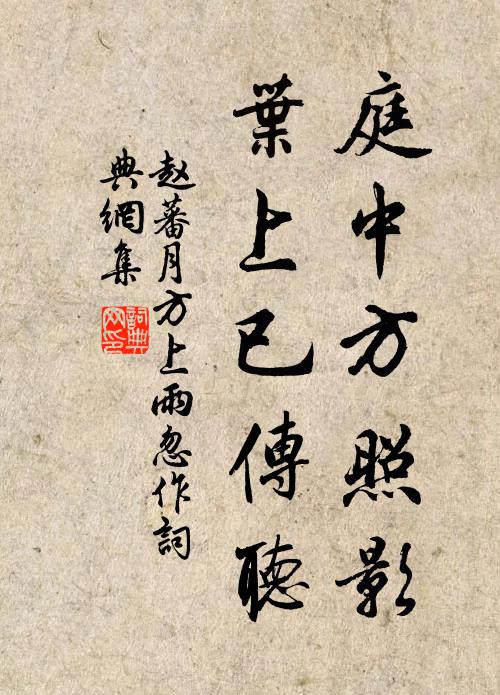 庭中方照影
葉上已傳聽
赵蕃月方上雨忽作詞
典網集
詞典
网印